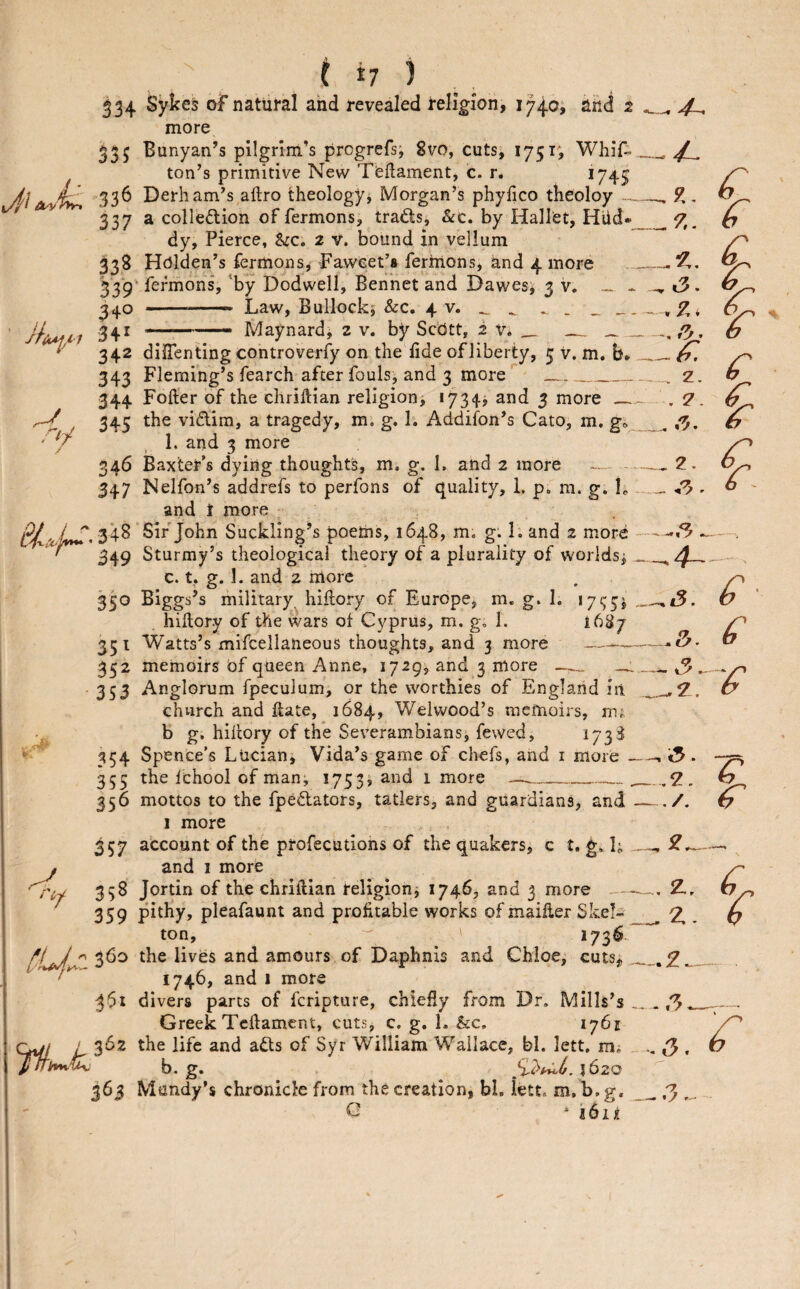 ( 17 )
334 Sykes of natural and revealed religion, 1740, and 2 4
more
335 Bunyan's pilgrim's progreſs, 8vo, cuts, 1751, Whiſ- 4
ton's primitive New Teſtament, c. r. 1745
336 Derham's aſtro theology, Morgan's phyſico theoloy 2. 6
337 a collection of ſermons, tracts, &c. by Hallet, Hud- 2. 6
dy, Pierce, &c. 2 v. bound in vellum
338 Holden's ſermons, Fawcet's ſermons, and 4 more 2. 6
339 ſermons, by Dodwell, Bennet and Dawes, 3 v. 3. 6
340 ——— Law, Bullock, &c. 4 v. 2. 6
341 ——— Maynard, 2 v. by Scott, 2 v. 3. 6
342 diſſenting controverſy on the ſide of liberty, 5 v. m. b. 6.
343 Fleming's ſearch after ſouls, and 3 more 2. 6
344 Foſter of the chriſtian religion, 1734, and 3 more 2. 6
345 the victim, a tragedy, m. g. l. Addiſon's Cato, m. g. 3. 6
l. and 3 more
346 Baxter's dying thoughts, m. g. l. and 2 more 2. 6
347 Nelſon's addreſs to perſons of quality, l. p. m. g. l. 3. 6
and 1 more
348 Sir John Suckling's poems, 1648, m. g. l. and 2 more 3
349 Sturmy's theological theory of a plurality of worlds, 4
c. t. g. l. and 2 more
350 Biggs's military hiſtory of Europe, m. g. l. 1755, 3. 6
hiſtory of the wars of Cyprus, m. g. l. 1687
351 Watts's miſcellaneous thoughts, and 3 more 3. 6
352 memoirs of queen Anne, 1729, and 3 more 3
353 Anglorum ſpeculum, or the worthies of England in 2. 6
church and ſtate, 1684, Welwood's memoirs, m.
b g. hiſtory of the Severambians, ſewed, 1738
354 Spence's Lucian, Vida's game of cheſs, and 1 more 3.
355 the ſchool of man, 1753, and 1 more 2. 6
356 mottos to the ſpectators, tatlers, and guardians, and 1. 6
1 more
357 account of the proſecutions of the quakers, c t. g. l. 2
and 1 more
358 Jortin of the chriſtian religion, 1746, and 3 more 2. 6
359 pithy, pleaſaunt and profitable works of maiſter Skel- 2. 6
ton, 1736
360 the lives and amours of Daphnis and Chloe, cuts, 2
1746, and 1 more
361 divers parts of ſcripture, chiefly from Dr. Mills's 3
Greek Teſtament, cuts, c. g. l. &c. 1761
362 the life and acts of Syr William Wallace, bl. lett. m. 3. 6
b. g. 1620
363 Mundy's chronicle from the creation, bl. lett. m. b. g. 3
C 1611